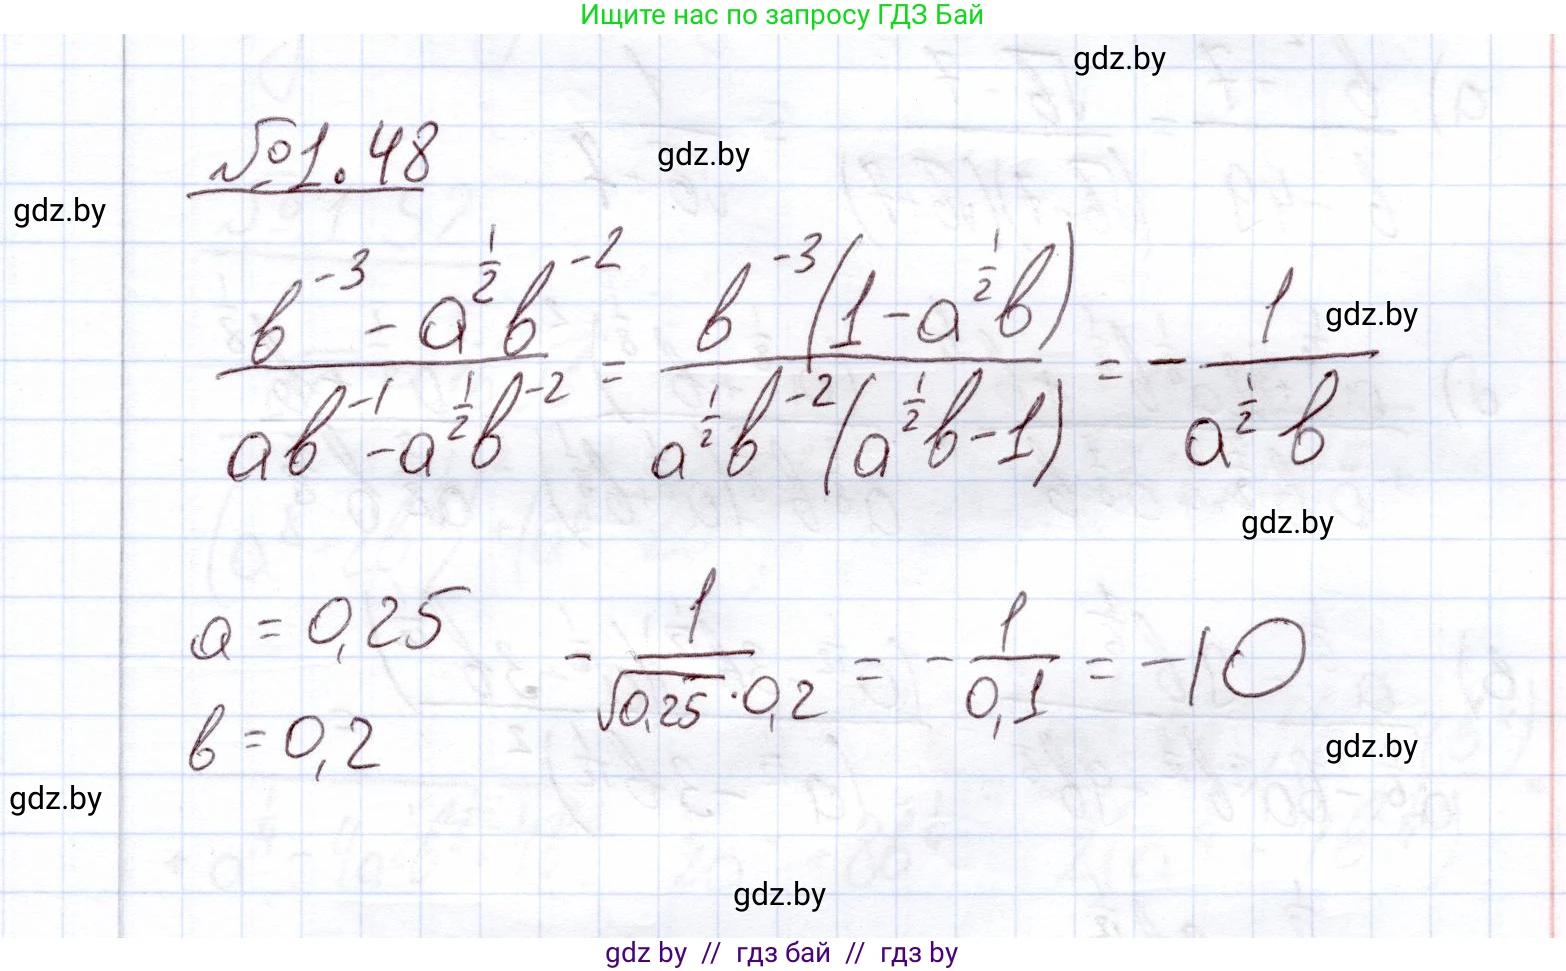 Ищите нас по запросу ГДЗ Бай
gdz.by
№1.48
gdz.by
gdz.by
(в^{-3} - a^{1/2}в^{-2}) / (aв^{-1} - a^{1/2}в^{-2}) = (в^{-3}(1 - a^{1/2}в)) / (a^{1/2}в^{-2}(a^{1/2}в - 1)) = - 1 / (a^{1/2}в)
gdz.by
gdz.by
a = 0,25
в = 0,2
- 1 / (√0,25 · 0,2) = - 1 / 0,1 = -10
gdz.by
gdz.by
gdz.by
gdz by // гдз бай // гдз by